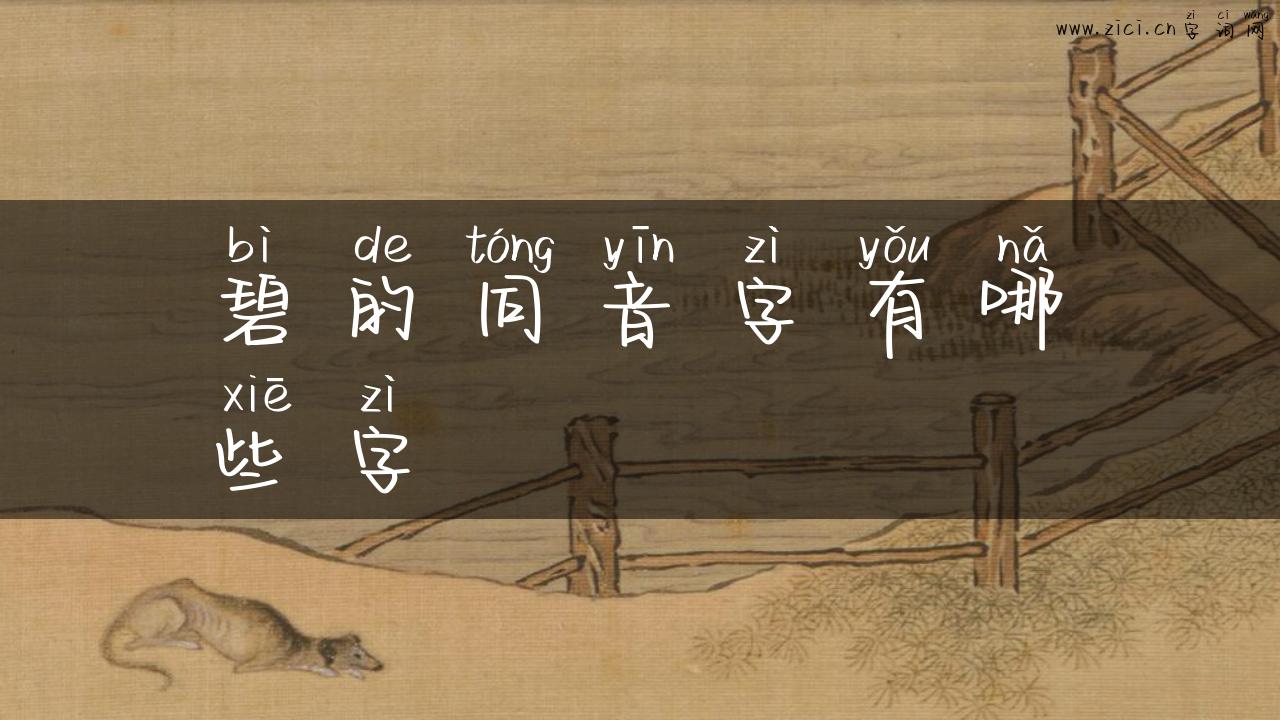 zì cí wǎng
www.zici.cn 字词网
bì de tóng yīn zì yǒu nǎ
碧的同音字有哪
xiē zì
些字